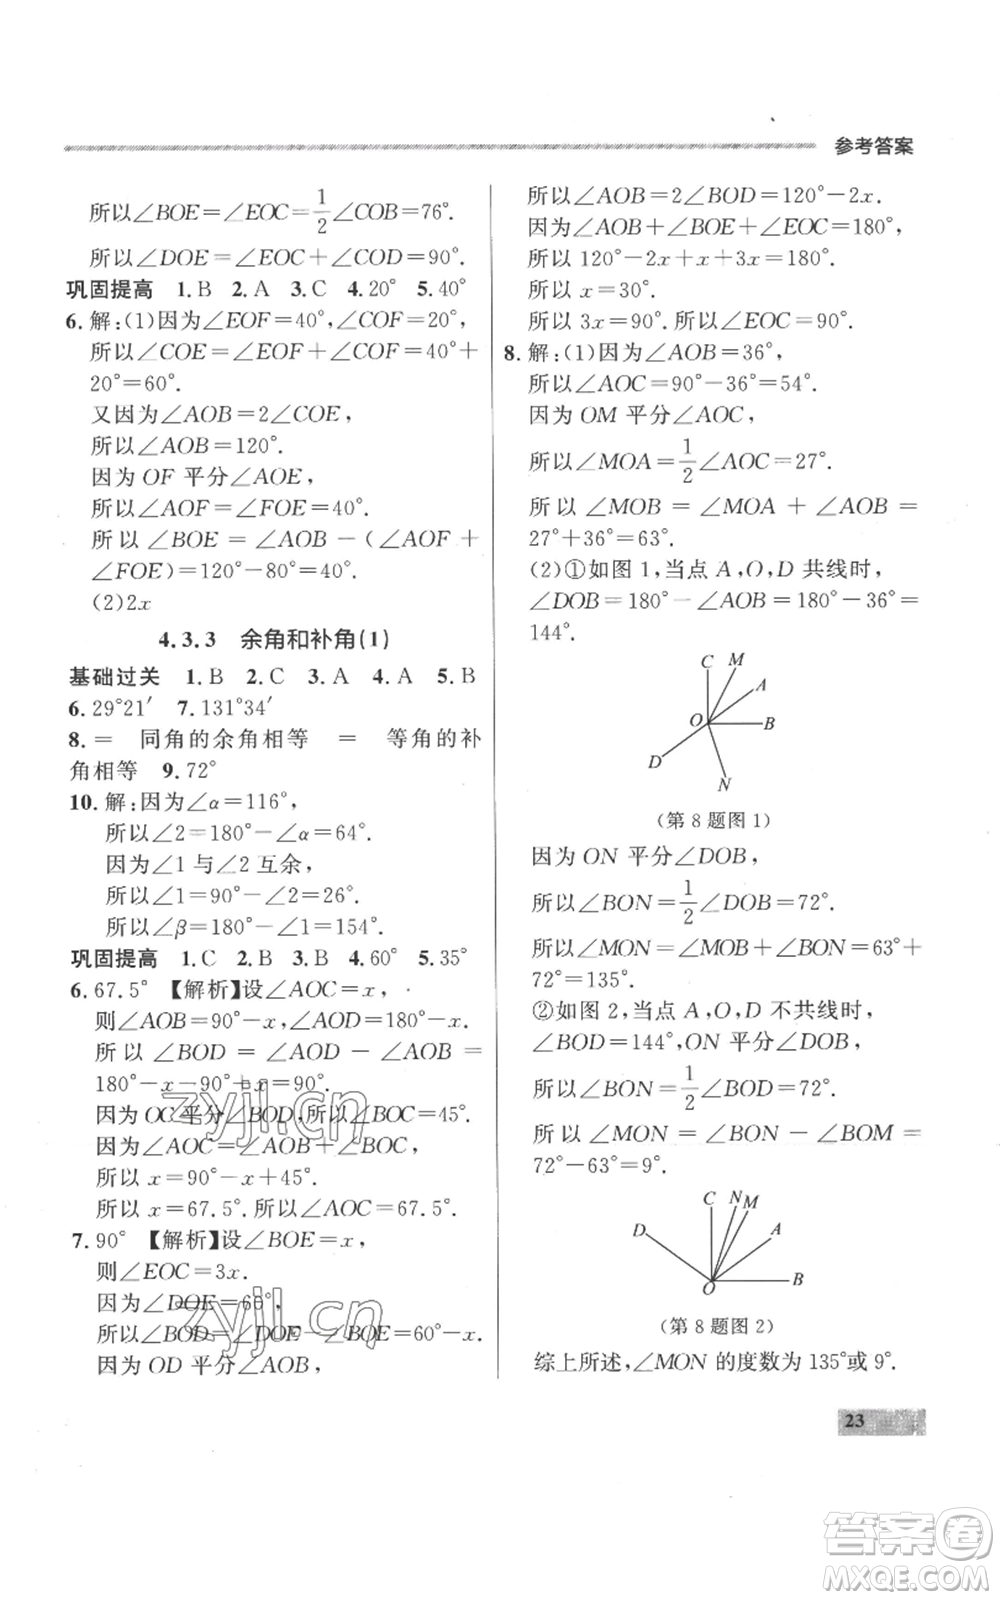 参考答案
所以∠BOE=∠EOC=1/2∠COB=76°.
所以∠DOE=∠EOC+∠COD=90°.
巩固提高 1.B 2.A 3.C 4.20° 5.40°
6.解:(1)因为∠EOF=40°,∠COF=20°,
所以∠COE=∠EOF+∠COF=40°+
20°=60°.
又因为∠AOB=2∠COE,
所以∠AOB=120°.
因为 OF 平分∠AOE,
所以∠AOF=∠FOE=40°.
所以∠BOE=∠AOB-(∠AOF+
∠FOE)=120°-80°=40°.
(2)2x
4.3.3 余角和补角(1)
基础过关 1.B 2.C 3.A 4.A 5.B
6.29°21′ 7.131°34′
8.= 同角的余角相等 = 等角的补
角相等 9.72°
10.解:因为∠α=116°,
所以∠2=180°-∠α=64°.
因为∠1 与∠2 互余,
所以∠1=90°-∠2=26°.
所以∠β=180°-∠1=154°.
巩固提高 1.C 2.B 3.B 4.60° 5.35°
6.67.5° 【解析】设∠AOC=x,
则∠AOB=90°-x,∠AOD=180°-x.
所以∠BOD=∠AOD-∠AOB=
180°-x-90°+x=90°.
因为 OC 平分∠BOD,所以∠BOC=45°.
因为∠AOC=∠AOB+∠BOC,
所以 x=90°-x+45°.
所以 x=67.5°.所以∠AOC=67.5°.
7.90° 【解析】设∠BOE=x,
则∠EOC=3x.
因为∠DOE=60°,
所以∠BOD=∠DOE-∠BOE=60°-x.
因为 OD 平分∠AOB,
所以∠AOB=2∠BOD=120°-2x.
因为∠AOB+∠BOE+∠EOC=180°,
所以 120°-2x+x+3x=180°.
所以 x=30°.
所以 3x=90°.所以∠EOC=90°.
8.解:(1)因为∠AOB=36°,
所以∠AOC=90°-36°=54°.
因为 OM 平分∠AOC,
所以∠MOA=1/2∠AOC=27°.
所以∠MOB=∠MOA+∠AOB=
27°+36°=63°.
(2)①如图 1,当点 A,O,D 共线时,
∠DOB=180°-∠AOB=180°-36°=
144°.
C M
A
O B
D
N
(第 8 题图 1)
因为 ON 平分∠DOB,
所以∠BON=1/2∠DOB=72°.
所以∠MON=∠MOB+∠BON=63°+
72°=135°.
②如图 2,当点 A,O,D 不共线时,
∠BOD=144°,ON 平分∠DOB,
所以∠BON=1/2∠BOD=72°.
所以∠MON=∠BON-∠BOM=
72°-63°=9°.
C N M
D A
O B
(第 8 题图 2)
综上所述,∠MON 的度数为 135°或 9°.
23
zyjl.cn
zyjl.cn
答案圈
MXQE.COM